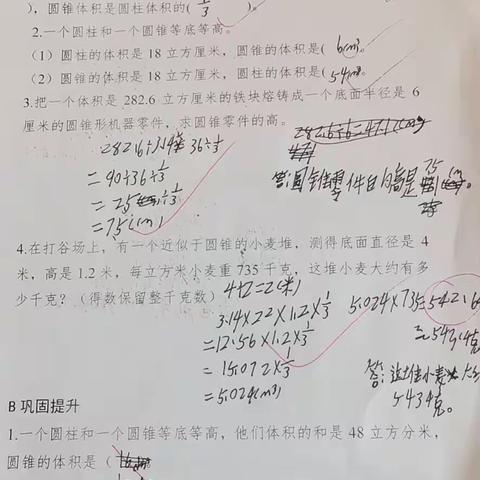 ），圆锥体积是圆柱体积的( 1/3 )。
2.一个圆柱和一个圆锥等底等高。
（1）圆柱的体积是 18 立方厘米，圆锥的体积是( 6cm³ 。
（2）圆锥的体积是 18 立方厘米，圆柱的体积是( 54cm³ 。
3.把一个体积是 282.6 立方厘米的铁块熔铸成一个底面半径是 6
厘米的圆锥形机器零件，求圆锥零件的高。
282.6÷3.14÷36÷1/3
=90÷36÷1/3
=2.5÷1/3
=7.5(cm)
答:圆锥零件的高是7.5cm。
4.在打谷场上，有一个近似于圆锥的小麦堆，测得底面直径是 4
米，高是 1.2 米，每立方米小麦重 735 千克，这堆小麦大约有多
少千克？（得数保留整千克数）
4÷2=2(米)
3.14×2²×1.2×1/3
=12.56×1.2×1/3
=15.072×1/3
=5.024(m³)
5.024×735=
答:这堆小麦
B 巩固提升
1.一个圆柱和一个圆锥等底等高，他们体积的和是 48 立方分米，
圆锥的体积是（